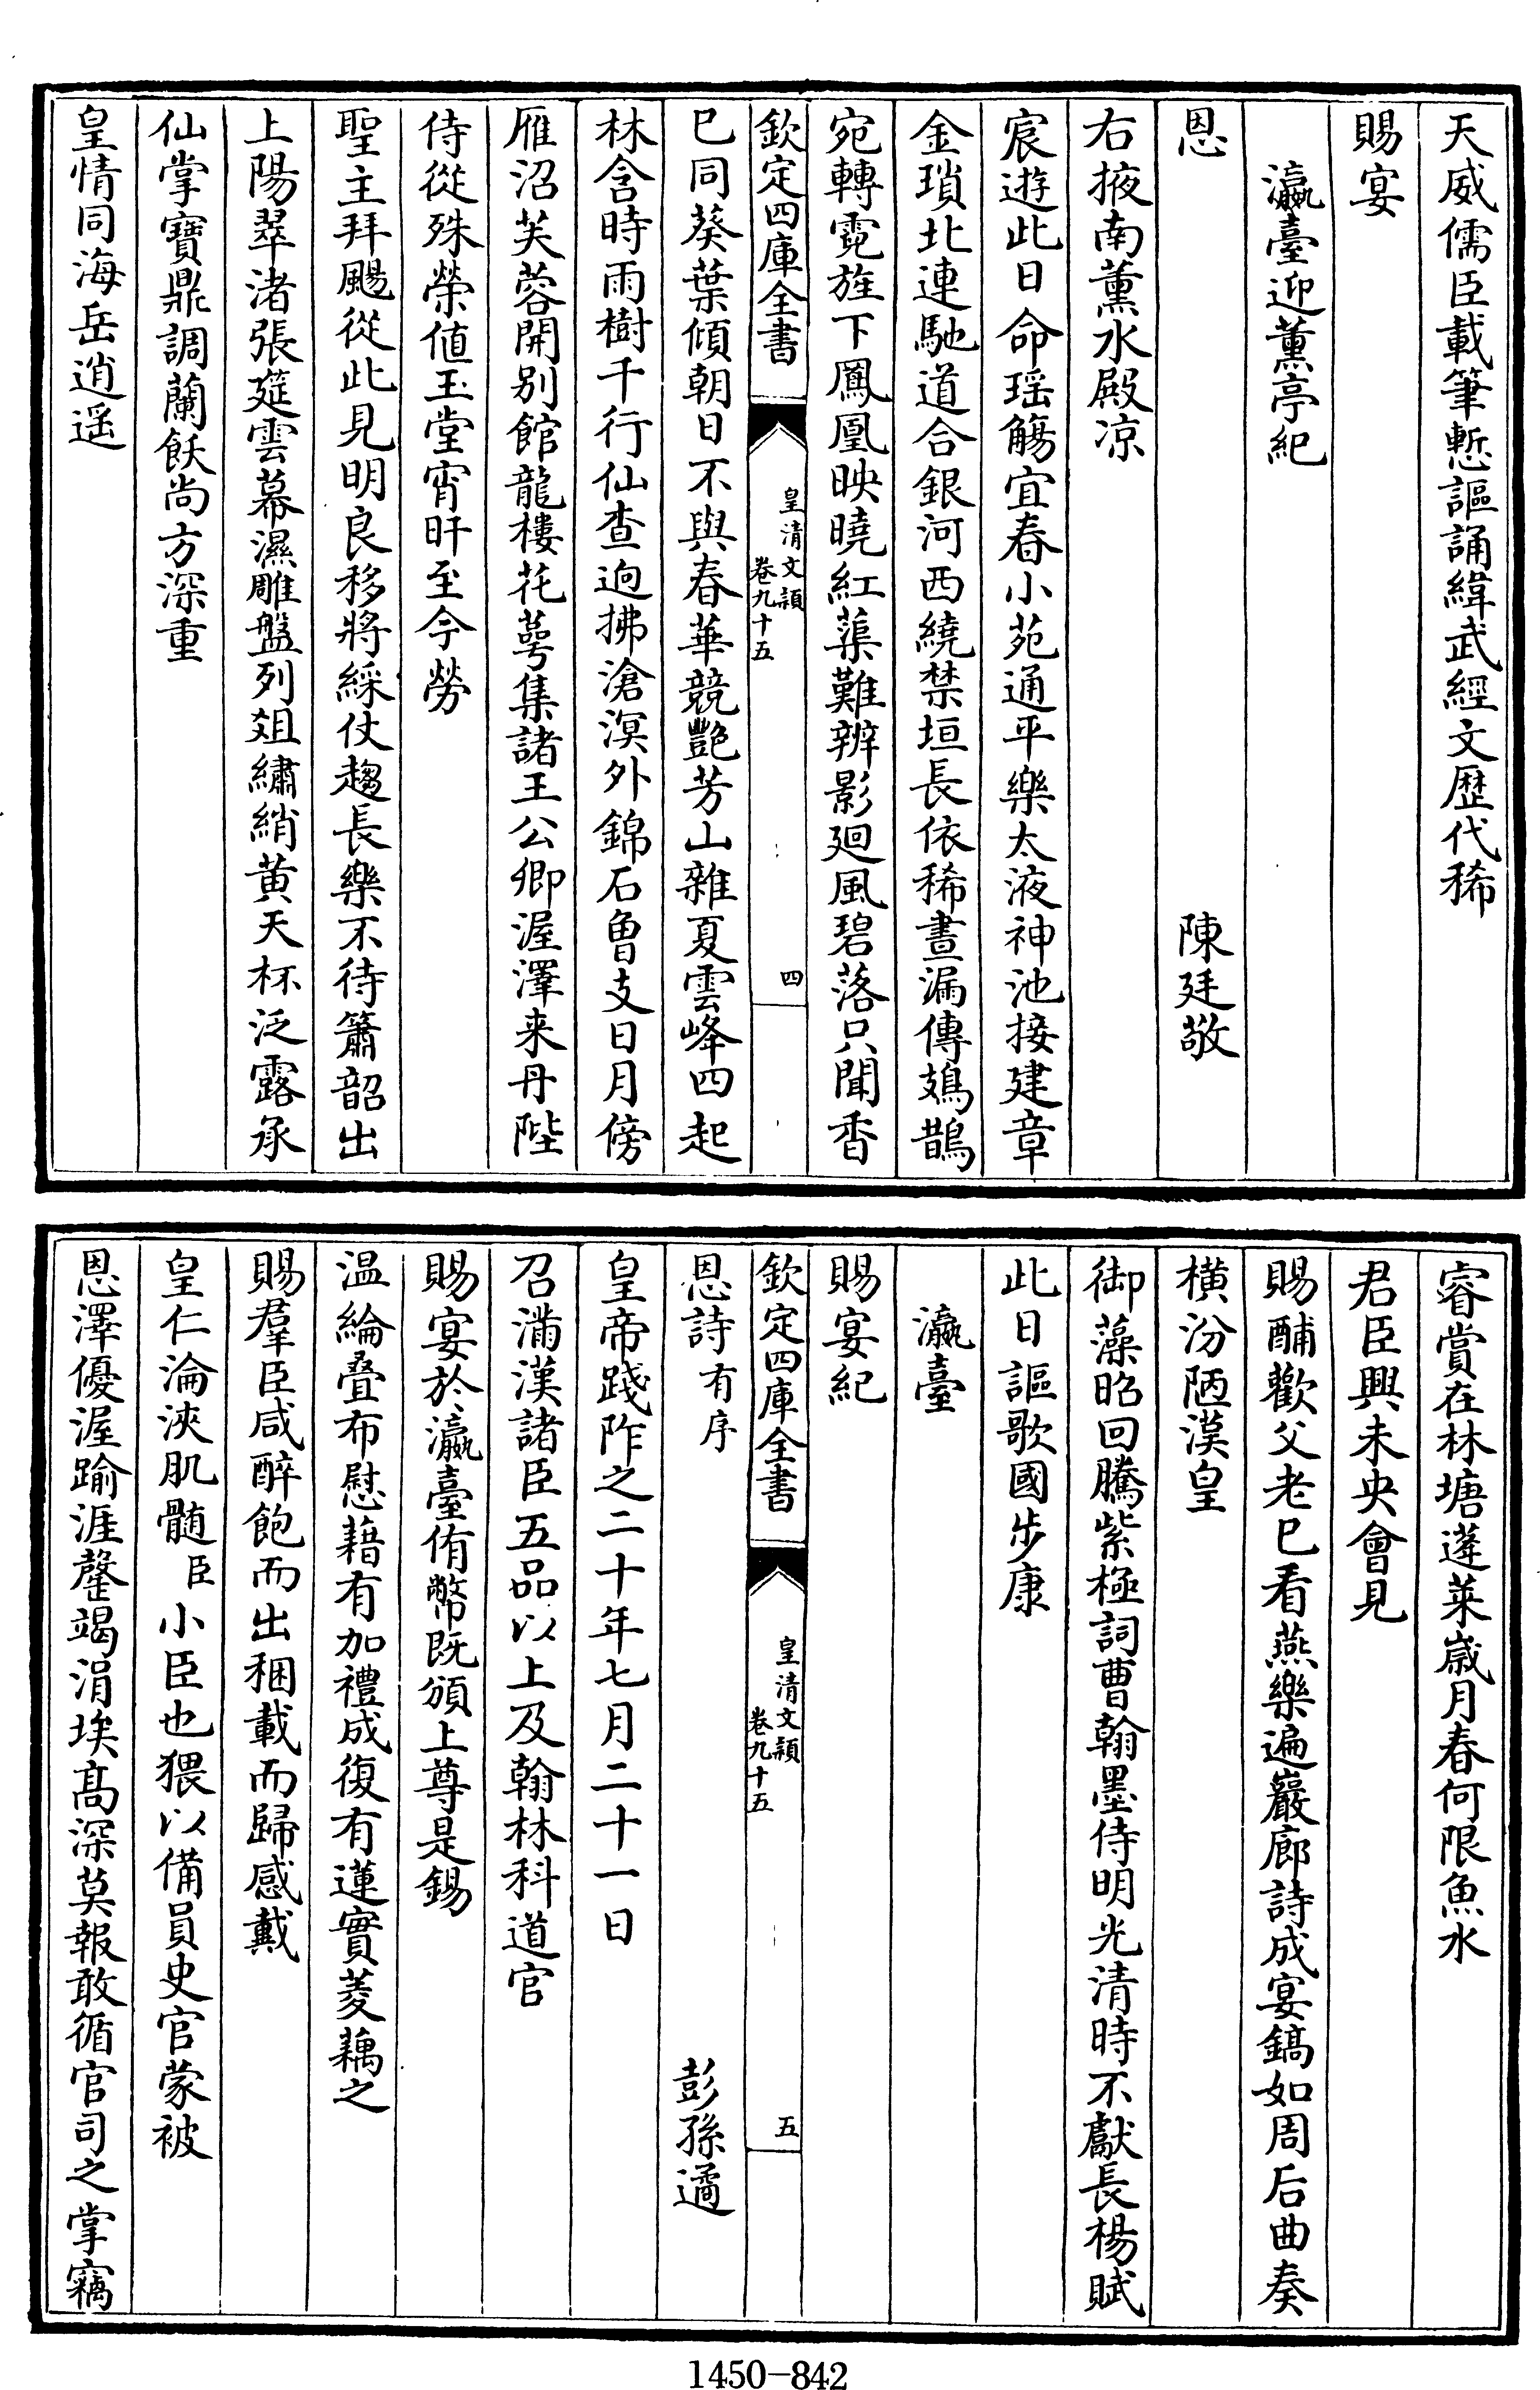 天威儒臣載筆慙謳誦緯武經文歴代稀
賜宴
瀛臺迎薫亭紀
恩 陳廷敬
右掖南薫水殿凉
宸遊此日命瑶觴宜春小苑通平樂太液神池接建章
金瑣北連馳道合銀河西繞禁垣長依稀晝漏傳鳷鵲
宛轉霓旌下鳳凰映曉紅蕖難辨影廻風碧落只聞香
欽定四庫全書
皇清文頴
卷九十五
四
已同葵葉傾朝日不與春華競艷芳山雜夏雲峰四起
林含時雨樹千行仙查逈拂滄溟外錦石曾支日月傍
雁沼芙蓉開别館龍樓花萼集諸王公卿渥澤来丹陛
侍從殊榮值玉堂宵旰至今勞
聖主拜颺從此見明良移將綵仗趨長樂不待簫韶出
上陽翠渚張筵雲幕濕雕盤列俎繡綃黄天杯泛露承
仙掌寶鼎調蘭飫尚方深重
皇情同海岳逍遥
睿賞在林塘蓬萊歳月春何限魚水
君臣興未央會見
賜酺歡父老已看燕樂遍巖廊詩成宴鎬如周后曲奏
横汾陋漢皇
御藻昭回騰紫極詞曹翰墨侍明光清時不獻長楊賦
此日謳歌國步康
瀛臺
賜宴紀
欽定四庫全書
皇清文頴
卷九十五
五
恩詩有序 彭孫遹
皇帝踐阼之二十年七月二十一日
召滿漢諸臣五品以上及翰林科道官
賜宴於瀛臺侑幣既頒上尊是錫
温綸疊布慰藉有加禮成復有蓮實菱藕之
賜羣臣咸醉飽而出稛載而歸感戴
皇仁淪浹肌髄臣小臣也猥以備員史官蒙被
恩澤優渥踰涯罄竭涓埃髙深莫報敢循官司之掌竊
1450-842